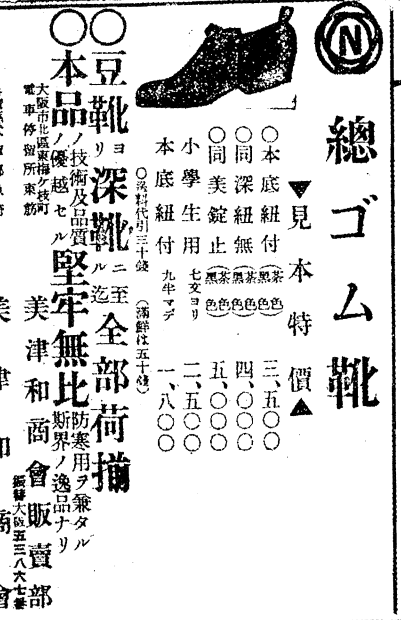 N
總ゴム靴
▼見本特價▲
○本底紐付(茶色黑色) 三、五〇〇
○同深紐無(茶色黑色) 四、〇〇〇
○同美錠止(茶色黑色) 五、〇〇〇
小學生用 七文ヨリ 二、五〇〇
本底紐付 九半マデ 一、八〇〇
○送料代引三十錢 (滿鮮は五十錢)
○豆靴ヨリ深靴ニ至ル迄全部荷揃
○本品ノ技術及品質ノ優越セル堅牢無比防寒用ヲ兼タル斯界ノ逸品ナリ
大阪市北區東梅ケ枝町
電車停留所東筋
美津和商會販賣部
振替大阪五三八六七番
美津和商會